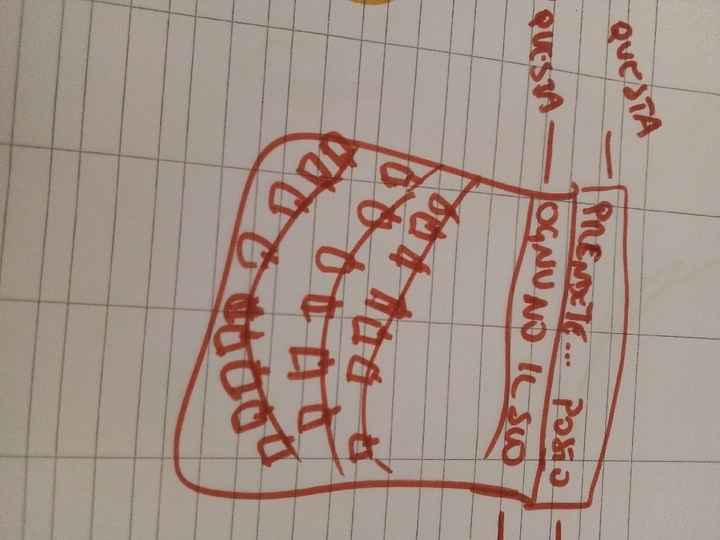 QUESTA
QUESTA
PRENDETE... POSTO
OGNUNO IL SUO